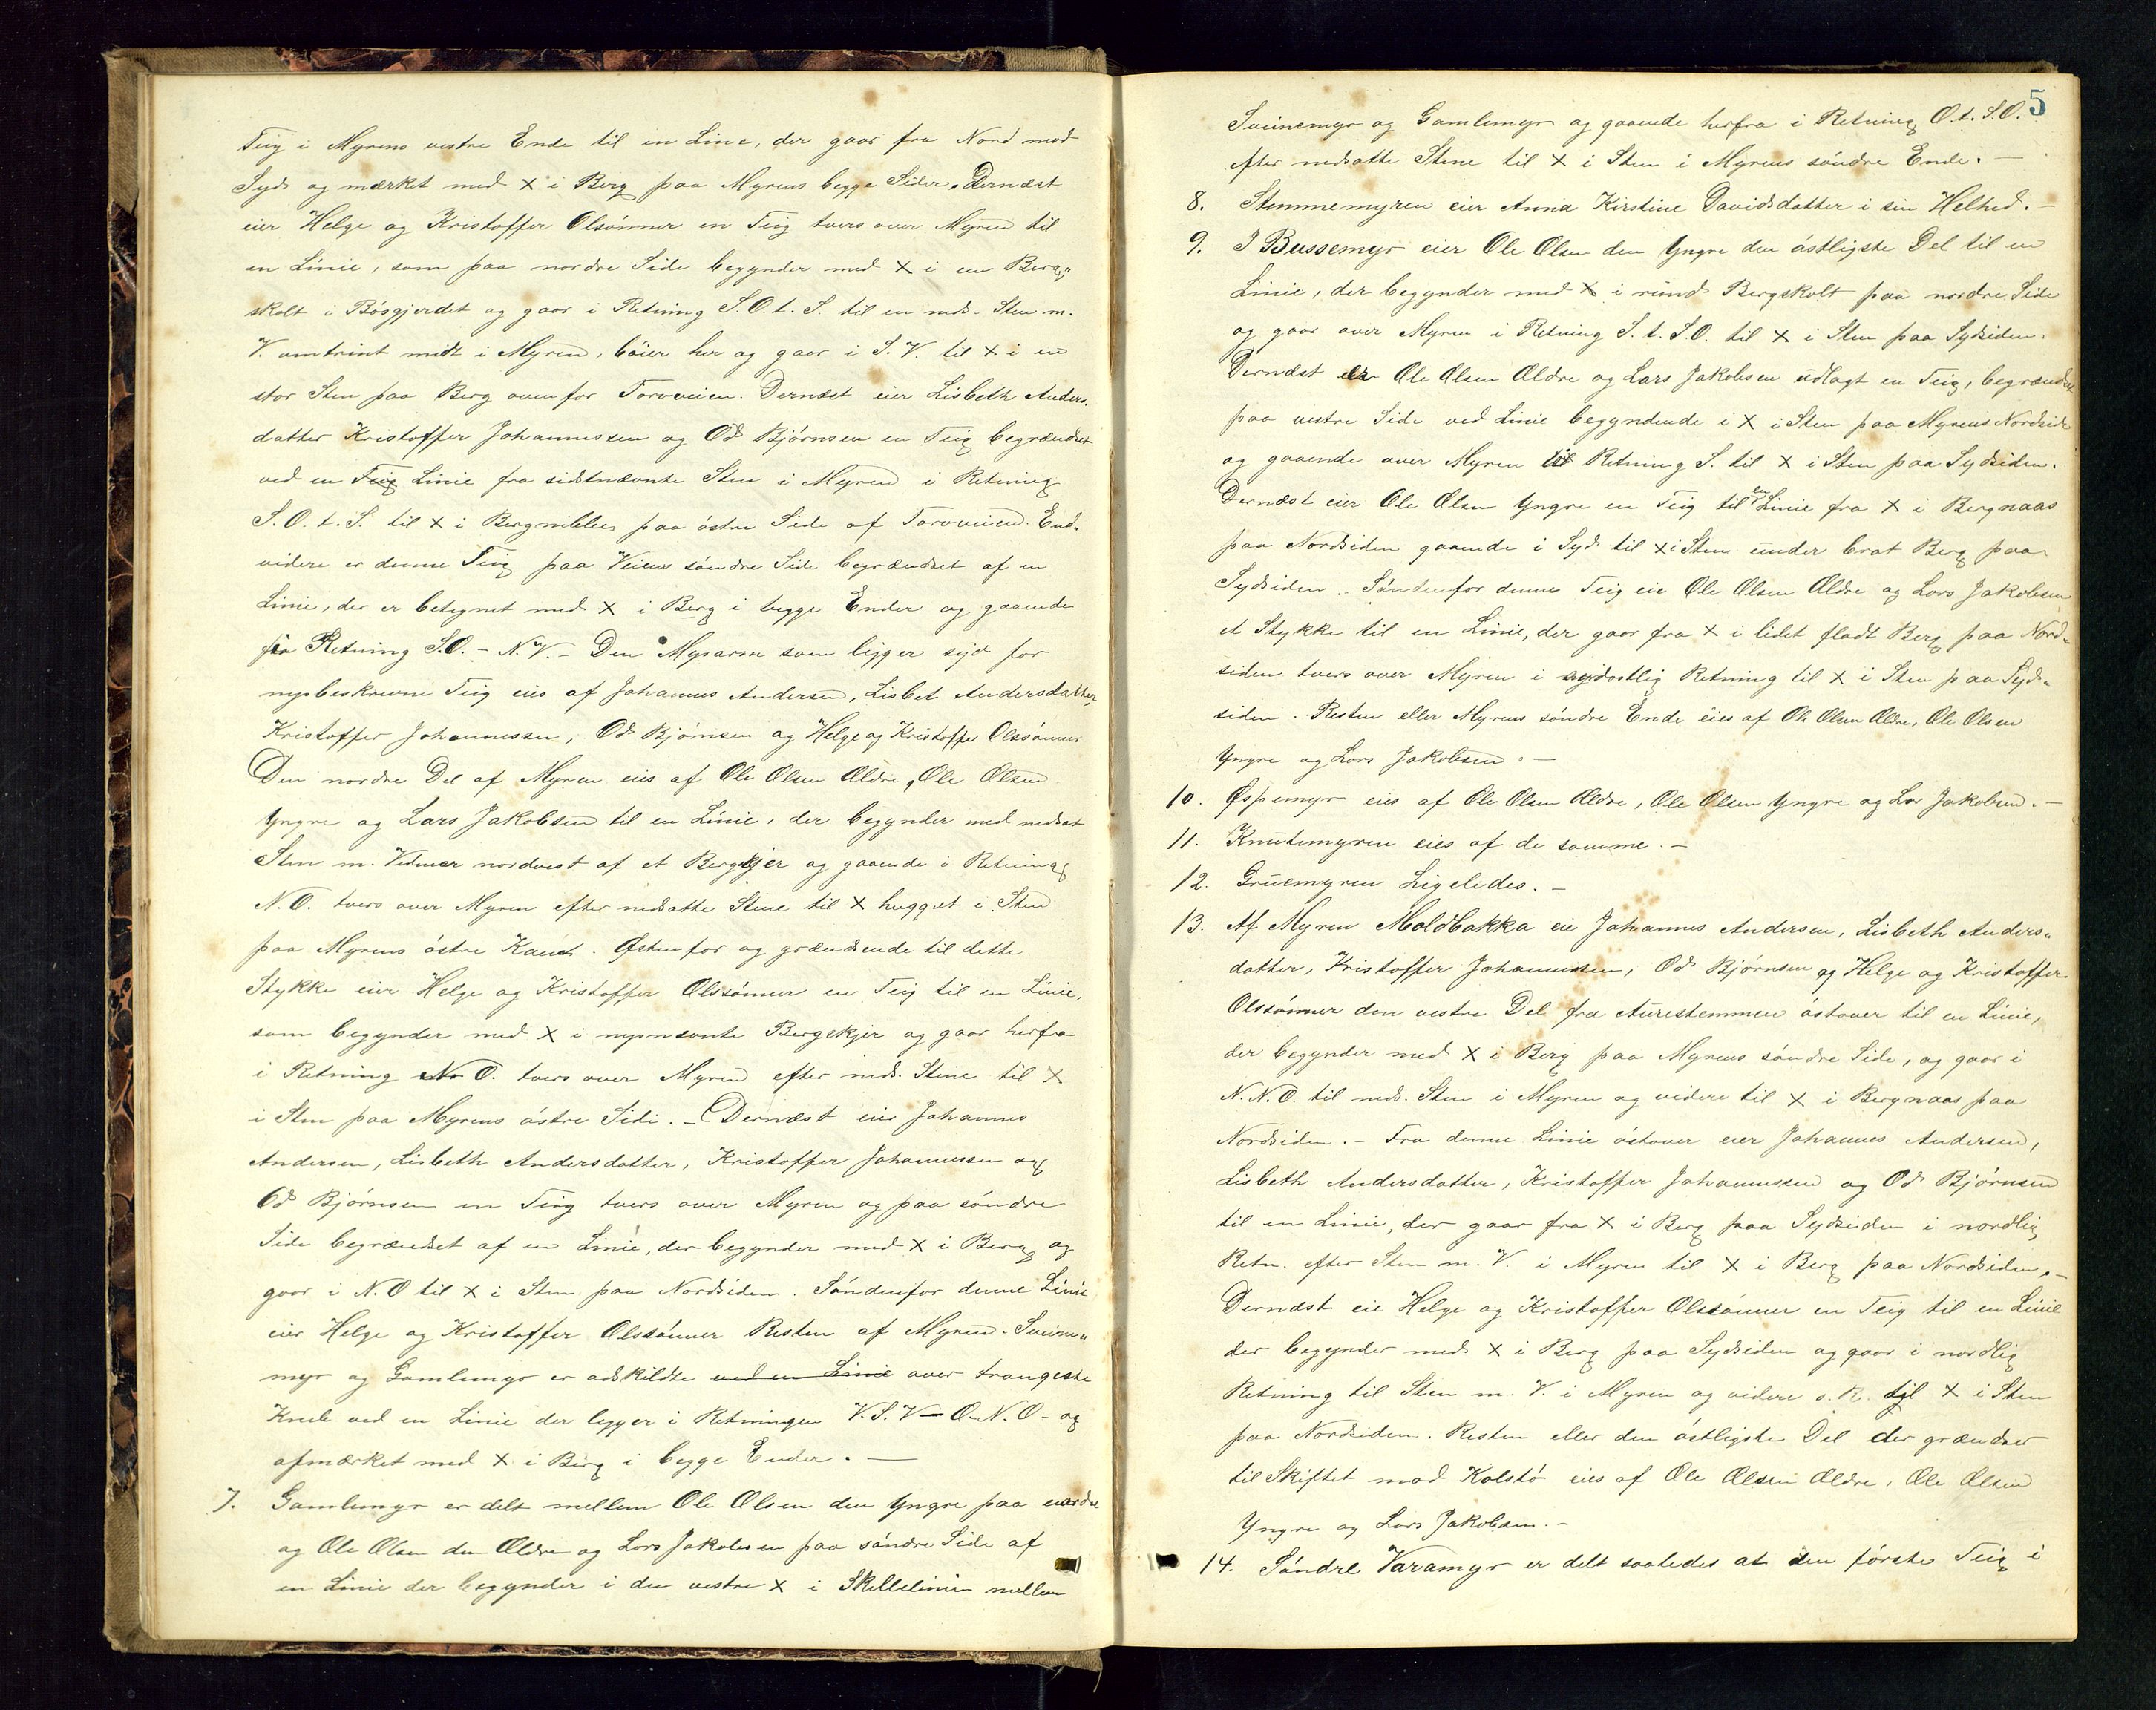 Teig i Myrens vestre Ende til en Line, der gaar fra Nord mod
Syd og mærket med X i Berg paa Myrens begge Sider. Dernæst
eier Helge og Kristoffer Olsónner en Teig tvers over Myren til
en Linie, som paa nordre Side begynder med X i en Berg„
skolt i Bósgjerdet og gaar i Retning S.O.t.S. til en neds. Sten m.
V. omtrint midt i Myren, bóier her og gaar i S.V. til X i en
stor Sten paa Berg ovenfor Torvveien. Dernæst eier Lisbeth Anders.
datter Kristoffer Johannessen og Od Bjórnsen en Teig begrændset
ved en Teig Linie fra sidstnævnte Sten i Myren i Retning
S.O.t.S. til X i Bergnibben paa óstre Side af Torvveien. End„
videre er denne Teig paa Veiens sóndre Side begrændset af en
Linie, der er betegnet med X i Berg i begge Ender og gaaende
i Retning S.O. – N.V. – Den Myrarm som ligger syd for
nysbeskrevne Teig eies af Johannes Andersen, Lisbet Andersdatter,
Kristoffer Johannessen, Od Bjórnsen og Helge og Kristoffer Olssónner
Den nordre Del af Myren eies af Ole Olsen Ældre, Ole Olsen
Yngre og Lars Jakobsen til en Linie, der begynder med nedsat
Sten m. Vidner nordvest af et Bergskjer og gaaende i Retning
N.O. tvers over Myren efter nedsatte Stene til X hugget i Sten
paa Myrens óstre Kant. Østenfor og grændsende til dette
Stykke eier Helge og Kristoffer Olssónner en Teig til en Linie,
som begynder med X i nysnævnte Bergskjer og gaar herfra
i Retning N.O. tvers over Myren efter neds. Stene til X
i Sten paa Myrens óstre Side. – Dernæst eier Johannes
Andersen, Lisbeth Andersdatter, Kristoffer Johannessen og
Od Bjórnsen en Teig tvers over Myren og paa sóndre
Side begrændset af en Linie, der begynder med X i Berg og
gaar i N.O til X i Sten paa Nordsiden. Sóndenfor denne Linie
eier Helge og Kristoffer Olssónner Resten af Myren. Sveine„
myr og Gamlemyr er adskildte ved en Linie over trangeste
Kneb ved en Linie der ligger i Retningen V.S.V – O.N.O – og
afmærket med X i Berg i begge Ender. —
7. Gamlemyr er delt mellem Ole Olsen den Yngre paa nordre
og Ole Olsen den Ældre og Lars Jakobsen paa sóndre Side af
en Linie der begynder i den vestre X i Skillelinien mellem
5
Sveinemyr og Gamlemyr og gaaende herfra i Retning O.t.S.O.
efter nedsatte Stene til X i Sten i Myrens sóndre Ende. —
8. Stemmemyren eier Anna Kirstine Davidsdatter i sin Helhed. –
9. I Bussemyr eier Ole Olsen den Yngre den óstligste Del til en
Linie, der begynder med X i rund Bergskolt paa nordre Side
og gaar over Myren i Retning S.t.S.O. til X i Sten paa Sydsiden.
Dernæst er Ole Olsen Ældre og Lars Jakobsen udlagt en Teig, begrændset
paa vestre Side ved Linie begyndende i X i Sten paa Myrens Nordside
og gaaende over Myren i Retning S. til X i Sten paa Sydsiden.
Dernæst eier Ole Olsen Yngre en Teig til en Linie fra X i Bergnaas
paa Nordsiden gaaende i Syd til X i Sten under brat Berg paa
Sydsiden. Sóndenfor denne Teig eie Ole Olsen Ældre og Lars Jakobsen
et Stykke til en Linie, der gaar fra X i lidet fladt Berg paa Nord„
siden tvers over Myren i sydostlig Retning til X i Sten paa Syd„
siden. Resten eller Myrens sóndre Ende eies af Ole Olsen Ældre, Ole Olsen
Yngre og Lars Jakobsen. —
10. Øspemyr eies af Ole Olsen Ældre, Ole Olsen Yngre og Lar Jakobsen. –
11. Knutemyren eies af de samme. –
12. Gruemyren Ligeledes. –
13. Af Myren Moldbakka eie Johannes Andersen, Lisbeth Anders„
datter, Kristoffer Johannessen, Od Bjórnsen og Helge og Kristoffer
Olssónner den vestre Del fra Aurestemmen óstover til en Linie,
der begynder med X i Berg paa Myrens sóndre Side, og gaar i
N.N.O. til neds. Sten i Myren og videre til X i Bergnaas paa
Nordsiden. – Fra denne Linie óstover eier Johannes Andersen,
Lisbeth Andersdatter, Kristoffer Johannessen og Od Bjórnsen
til en Linie, der gaar fra X i Berg paa Sydsiden i nordlig
Retn. efter Sten m. V. i Myren til X i Berg paa Nordsiden. –
Dernæst eie Helge og Kristoffer Olssónner en Teig til en Linie
der begynder med X i Berg paa Sydsiden og gaar i nordlig
Retning til Sten m. V. i Myren og videre s. R. til X i Sten
paa Nordsiden. Resten eller den óstligste Del der grændser
til Skiftet mod Kolstó eies af Ole Olsen Ældre, Ole Olsen
Yngre og Lars Jakobsen. –
14. Sóndre Varamyr er delt saaledes at den fórste Teig i